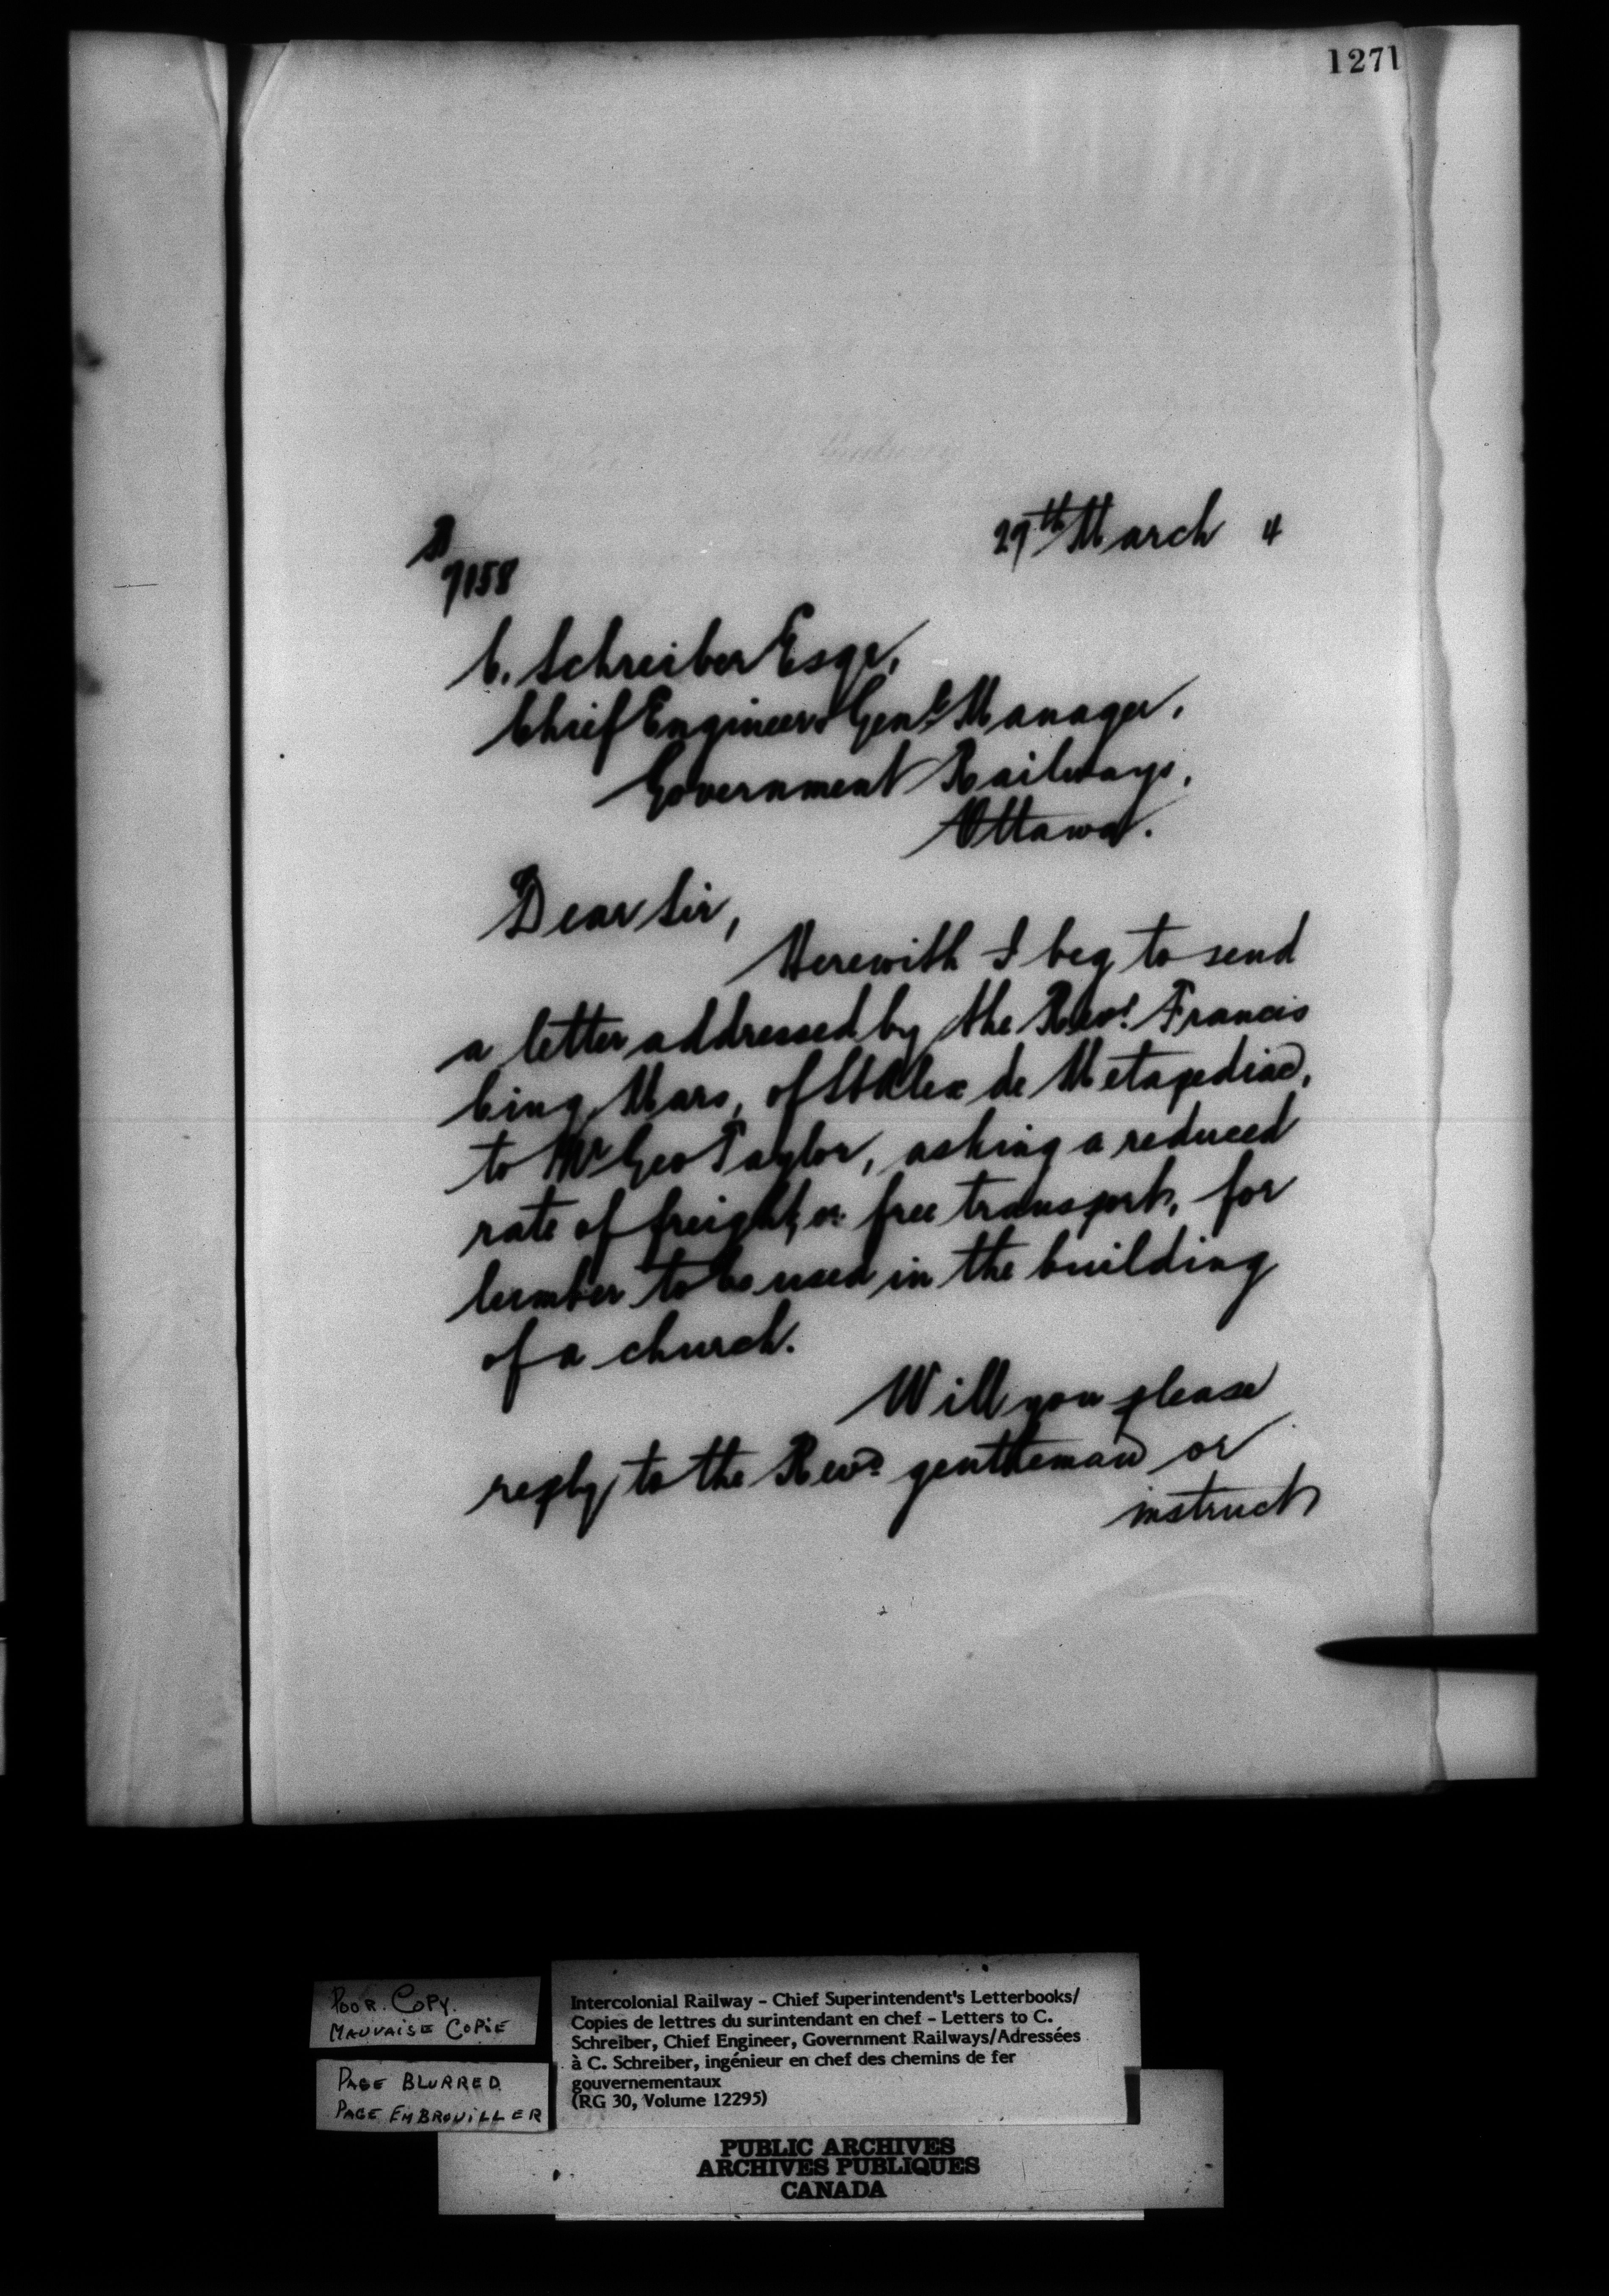 1271
29th March 4
7158
C. Schreiber Esqr,
Chief Engineer & Genl Manager,
Government Railways,
Ottawa.
Dear Sir,
Herewith I beg to send
a letter addressed by the Revd Francis
Cinq Mars, of St Alex de Metapediac,
to Mr Geo Taylor, asking a reduced
rate of freight, or free transport, for
lumber to be used in the building
of a church.
Will you please
reply to the Revd gentleman or
instruct
POOR COPY.
MAUVAISE COPIE
PAGE BLURRED
PAGE EMBROUILLER
Intercolonial Railway - Chief Superintendent's Letterbooks/
Copies de lettres du surintendant en chef - Letters to C.
Schreiber, Chief Engineer, Government Railways/Adressées
à C. Schreiber, ingénieur en chef des chemins de fer
gouvernementaux
(RG 30, Volume 12295)
PUBLIC ARCHIVES
ARCHIVES PUBLIQUES
CANADA